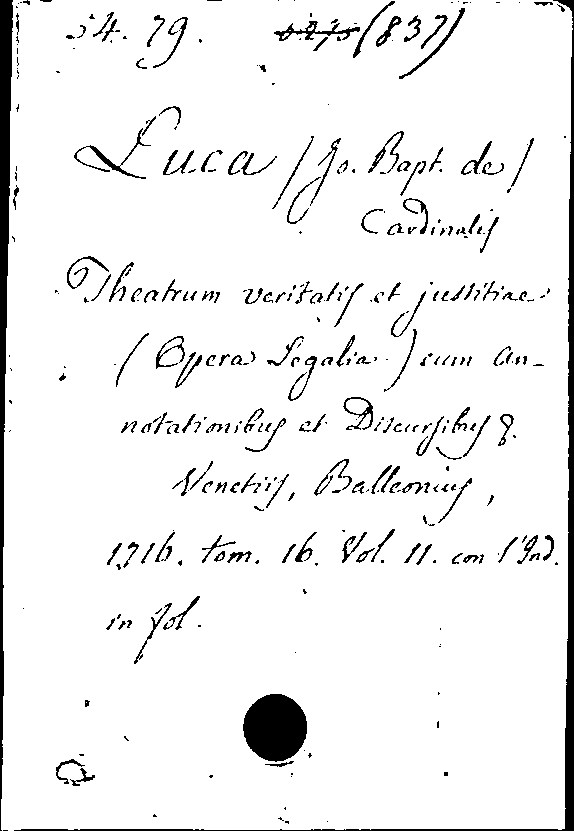 54. 79. (837)
Luca / Jo. Bapt. de /
Cardinalis
Theatrum veritatis et justitiae
(Opera Legalia) cum an-
notationibus et Discursibus &.
Venetiis, Balleonius,
1716. tom. 16. Vol. 11. con l'Ind.
in fol.